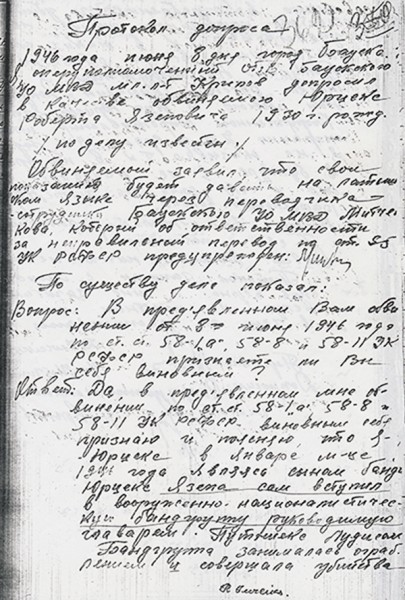 350
Протокол допроса
1946 года июня 8 дня город Бауска.
оперуполномоченный Бауского
УО МВД мл. л-т допросил
в качестве обвиняемого Юрцекс
Роберта Язеповича 1930 г. рожд.
/ по делу известен /
Обвиняемый заявил, что свои
показания будет давать на латыш
ском языке через переводчика
-сотрудника Бауского УО МВД
кова, который об ответственности
за неправильный перевод по ст. 95
УК РСФСР предупрежден:
По существу дела показал:
Вопрос: В предъявленном Вам обви
нении от 8го июня 1946 года
по ст. ст. 58-1"а", 58-8 и 58-11 УК
РСФСР признаете ли Вы
себя виновным?
Ответ: Да, в предъявленном мне об-
винении по ст. ст. 58-1"а", 58-8 и
58-11 УК РСФСР виновным себя
признаю и поясняю, что я,
Юрцекс в январе м-це
1946 года являясь сыном банд.
Юрцекс Язепа сам вступил
в вооруженно-националистичес-
кую бандгруппу руководимую
главарем Лудисом
Бандгруппа занималась ограб-
лением и совершала убийства